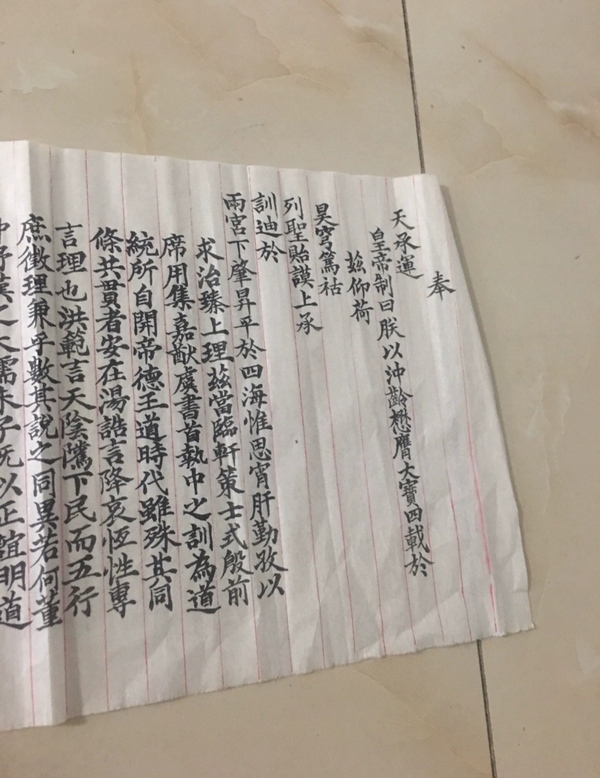 奉
天承運
皇帝制曰朕以沖齡懋膺大寶四載於
茲仰荷
昊穹篤祜
列聖貽謨上承
訓迪於
兩宮下肇昇平於四海惟思宵旰勤孜以
求治臻上理茲當臨軒策士式殷前
席用集嘉猷虞書首執中之訓為道
統所自開帝德王道時代雖殊其同
條共貫者安在湯誥言降衷恆性專
言理也洪範言天陰騭下民而五行
庶徵理兼乎數其說之同異若何董
仲舒漢之大儒朱子既以正誼明道